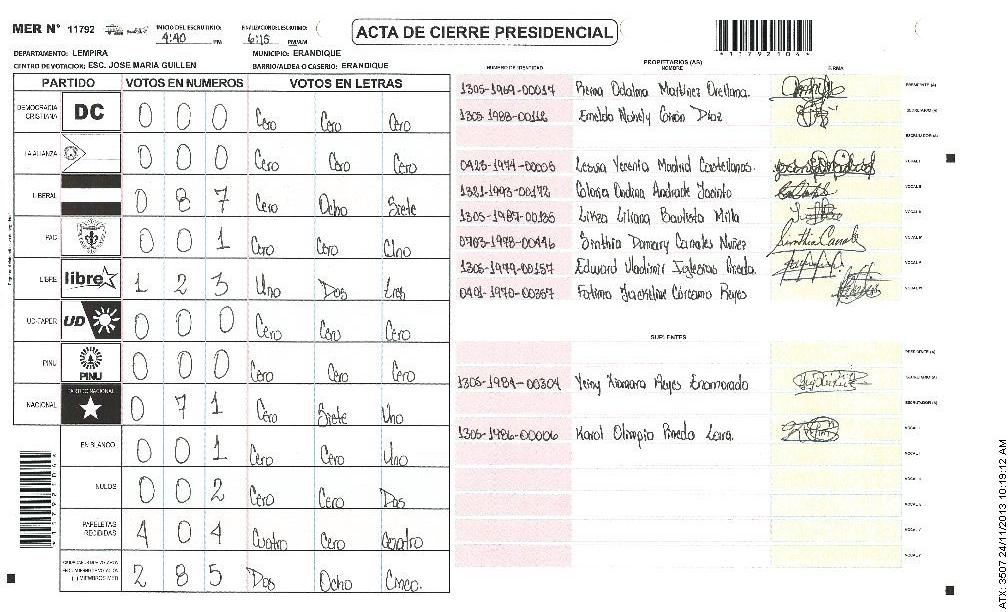 MER Nº 11792 INICIO DEL ESCRUTINIO: 4:40 PM FINALIZACION DEL ESCRUTINIO: 6:15 PM/AM ACTA DE CIERRE PRESIDENCIAL 11792104
DEPARTAMENTO: LEMPIRA MUNICIPIO: ERANDIQUE
CENTRO DE VOTACION: ESC. JOSE MARIA GUILLEN BARRIO/ALDEA O CASERIO: ERANDIQUE
PARTIDO VOTOS EN NUMEROS VOTOS EN LETRAS
DEMOCRACIA CRISTIANA DC 0 0 0 Cero Cero Cero
LA ALIANZA 0 0 0 Cero Cero Cero
LIBERAL 0 8 7 Cero Ocho Siete
PAC 0 0 1 Cero Cero Uno
LIBRE libre 1 2 3 Uno Dos Tres
UD-FAPER UD 0 0 0 Cero Cero Cero
PINU PINU 0 0 0 Cero Cero Cero
NACIONAL PARTIDO NACIONAL 0 7 1 Cero Siete Uno
EN BLANCO 0 0 1 Cero Cero Uno
NULOS 0 0 2 Cero Cero Dos
PAPELETAS RECIBIDAS 4 0 4 Cuatro Cero Cuatro
2 8 5 Dos Ocho Cinco.
PROPIETARIOS (AS)
NUMERO DE IDENTIDAD NOMBRE FIRMA
1305-1969-00017 Reina Odalma Martinez Orellana. PRESIDENTE (A)
1305-1988-00118 Emelda Nohely Giron Diaz SECRETARIO (A)
ESCRUTADOR (A)
0423-1974-00005 Lesbia Yesenia Madrid Castellanos. VOCAL I
1321-1993-00172 Gloria Ondina Andrade Jacinto VOCAL II
1305-1987-00135 Linza Liliana Bautista Milla VOCAL III
0703-1998-00446 Sinthia Damary Canales Nuñez VOCAL IV
1305-1979-00157 Edward Vladimir Iglesias Pineda. VOCAL V
0401-1970-00357 Fatima Jackeline Cárcamo Reyes VOCAL VI
SUPLENTES
PRESIDENTE (A)
1305-1984-00304 Yeiny Xiomara Reyes Enamorado SECRETARIO (A)
ESCRUTADOR (A)
1305-1986-00006 Karol Olimpia Pineda Lara. VOCAL I
ATX: 3507 24/11/2013 10:19:12 AM